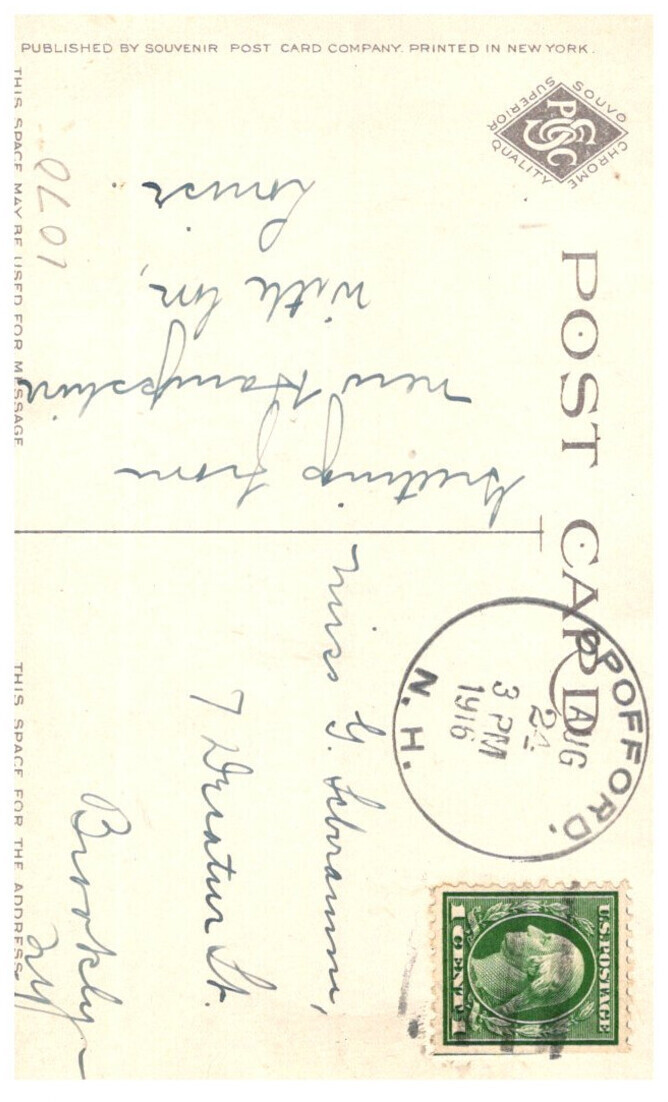 PUBLISHED BY SOUVENIR POST CARD COMPANY. PRINTED IN NEW YORK.
SOUVO CHROME
SUPERIOR QUALITY
PSCC
POST CARD
THIS SPACE MAY BE USED FOR MESSAGE
THIS SPACE FOR THE ADDRESS
1070
Greetings from
New Hampshire
with
Louise
SPOFFORD.
AUG
24
3 PM
1916
N. H.
U.S. POSTAGE
1 CENT 1
Miss G.
7 Decatur St.
Brooklyn
NY